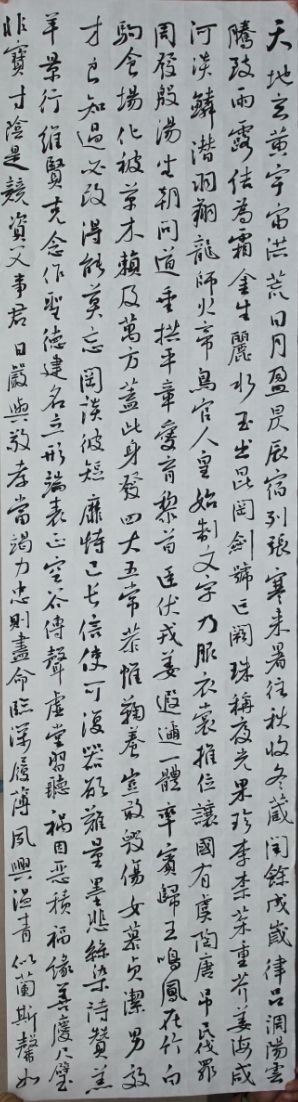 天地玄黃宇宙洪荒日月盈昃辰宿列張寒来暑往秋收冬藏閏餘成歲律呂調陽雲
騰致雨露結為霜金生麗水玉出崑岡劍號巨闕珠稱夜光果珍李柰菜重芥姜海咸
河淡鱗潛羽翔龍師火帝鳥官人皇始制文字乃服衣裳推位讓國有虞陶唐吊民伐罪
周發殷湯坐朝問道垂拱平章愛育黎首臣伏戎羌遐邇一體率賓歸王鳴鳳在竹白
駒食場化被草木賴及萬方蓋此身發四大五常恭惟鞠養豈敢毀傷女慕貞潔男效
才良知過必改得能莫忘罔談彼短靡恃己長信使可復器欲難量墨悲絲染詩贊羔
羊景行維賢克念作聖德建名立形端表正空谷傳聲虛堂習聽禍因惡積福緣善慶尺璧
非寶寸陰是競資父事君曰嚴與敬孝當竭力忠則盡命臨深履薄夙興溫清似蘭斯馨如